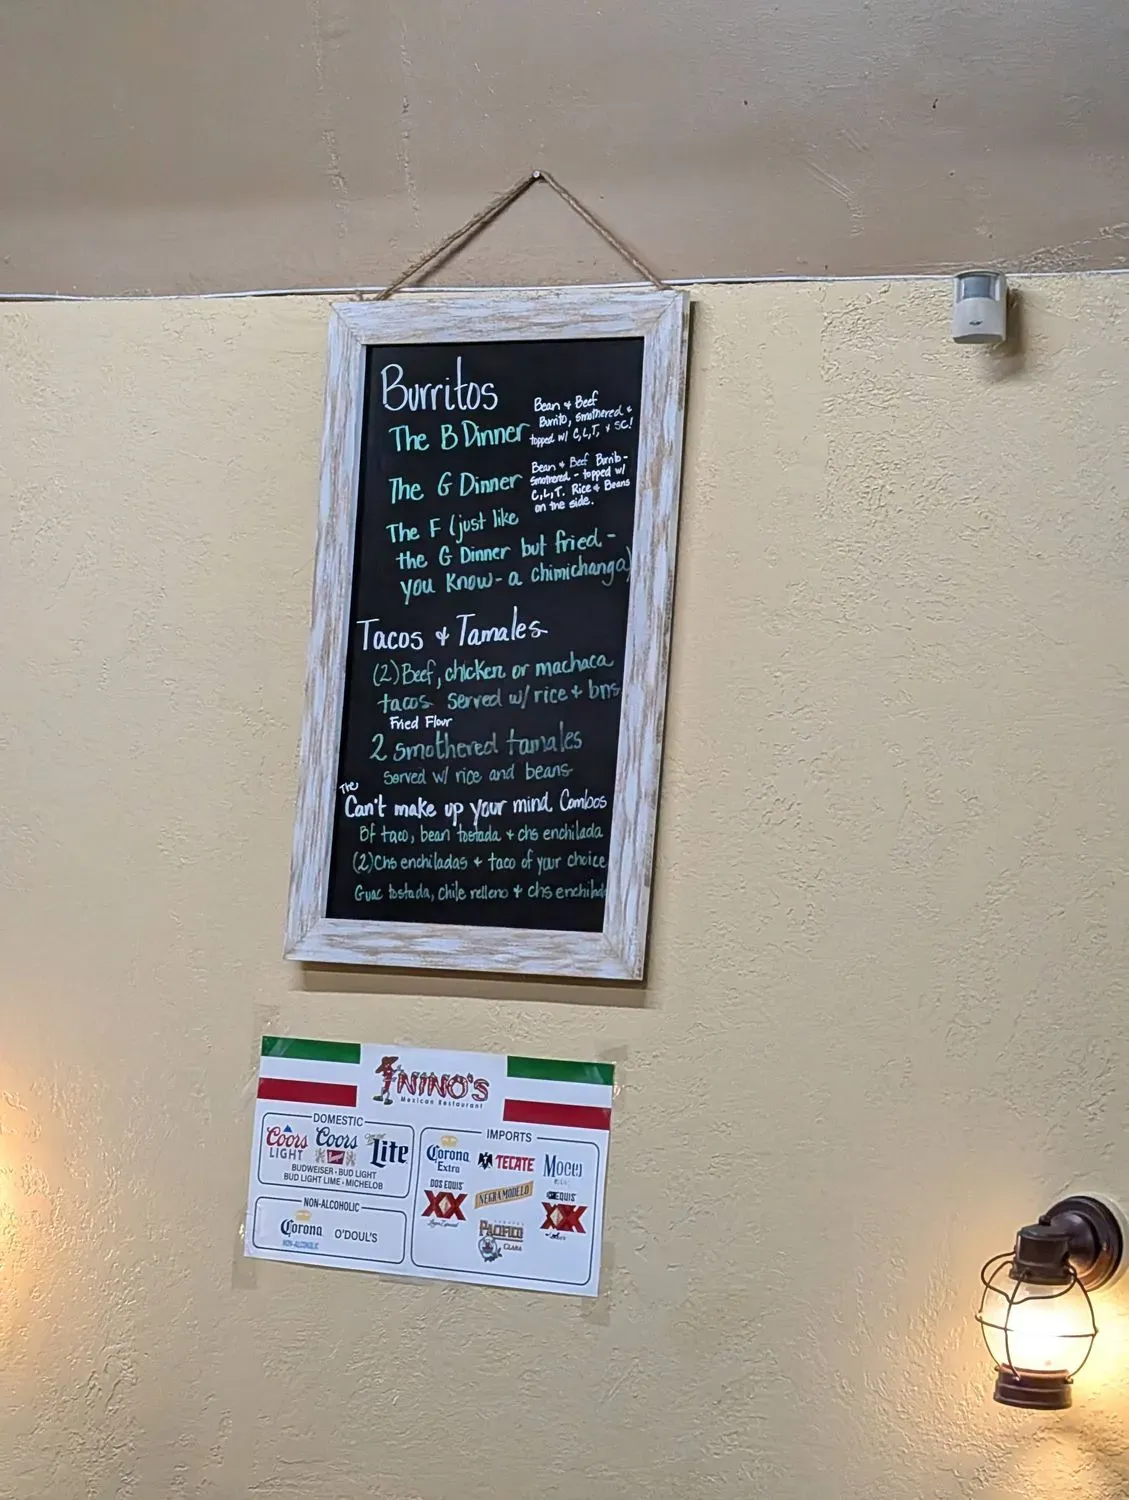 Burritos
The B Dinner
Bean + Beef
Burrito, smothered +
topped w/ C, L, T, + SC!
The G Dinner
Bean + Beef Burrito-
smothered - topped w/
C, L, T. Rice + Beans
on the side.
The F (just like
the G Dinner but fried -
you know - a chimichanga)
Tacos + Tamales
(2) Beef, chicken or machaca
tacos served w/ rice + bns
Fried Flour
2 smothered tamales
served w/ rice and beans
The
Can't make up your mind Combos
Bf taco, bean tostada + chs enchilada
(2) Chs enchiladas + taco of your choice
Guac tostada, chile relleno + chs enchilada
NINO'S
Mexican Restaurant
DOMESTIC
Coors LIGHT
Coors
Lite
BUDWEISER • BUD LIGHT
BUD LIGHT LIME • MICHELOB
NON-ALCOHOLIC
Corona
NON-ALCOHOLIC
O'DOUL'S
IMPORTS
Corona
Extra
TECATE
DOS EQUIS
XX
Lager Especial
NEGRA MODELO
EQUIS
XX
PACIFICO
CLARA